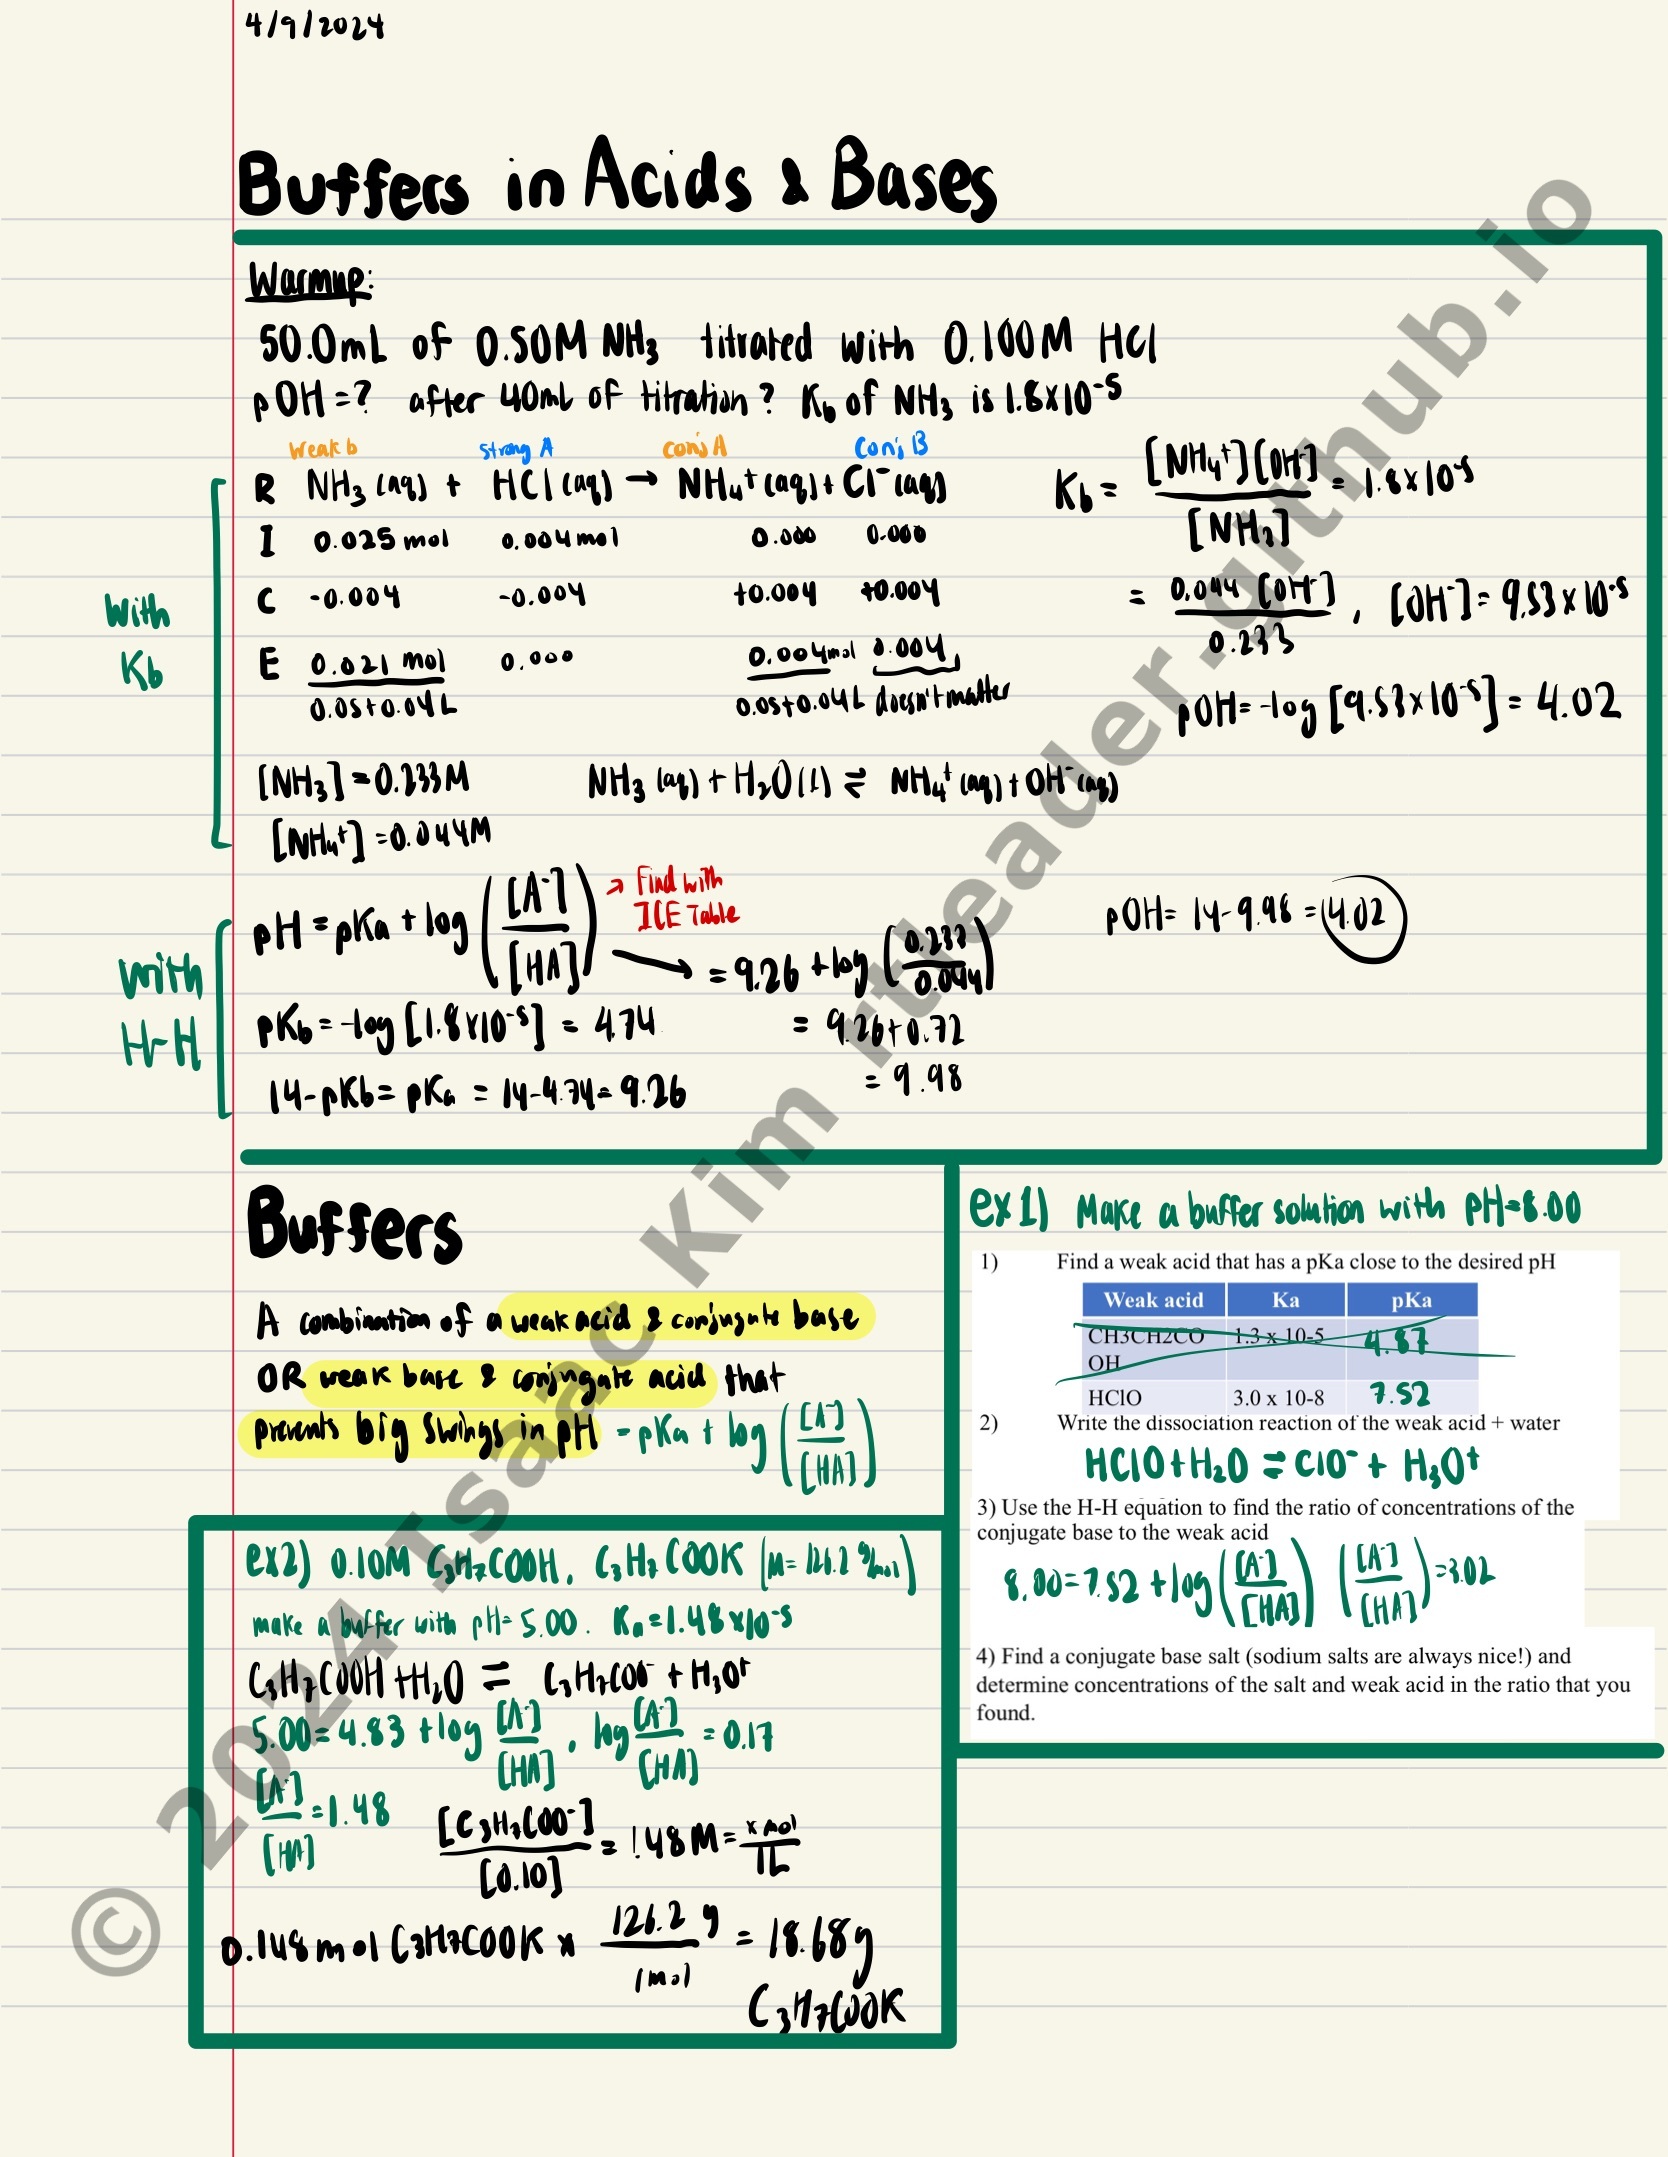 4/9/2024
Buffers in Acids & Bases
Warmup:
50.0mL of 0.50M NH₃ titrated with 0.100M HCl
pOH=? after 40mL of titration? Kb of NH₃ is 1.8x10⁻⁵
weak b strong A conj A conj B
R NH₃ (aq) + HCl (aq) → NH₄⁺ (aq) + Cl⁻ (aq)
I 0.025 mol 0.004 mol 0.000 0.000
C -0.004 -0.004 +0.004 +0.004
E 0.021 mol 0.000 0.004 mol 0.004
0.05+0.04L 0.05+0.04L doesn't matter
With
Kb
[NH₃]=0.233M NH₃ (aq) + H₂O (l) ⇌ NH₄⁺ (aq) + OH⁻ (aq)
[NH₄⁺]=0.044M
Kb = [NH₄⁺][OH⁻] / [NH₃] = 1.8x10⁻⁵
= 0.044 [OH⁻] / 0.233 , [OH⁻]= 9.53x10⁻⁵
pOH=-log [9.53x10⁻⁵] = 4.02
With
H-H
pH = pKa + log ([A⁻] / [HA]) → Find with
ICE Table
= 9.26 + log (0.233 / 0.044)
pKb = -log [1.8x10⁻⁵] = 4.74 = 9.26+0.72
14-pKb = pKa = 14-4.74=9.26 = 9.98
pOH= 14-9.98 = 4.02
Buffers
A combination of a weak acid & conjugate base
OR weak base & conjugate acid that
prevents big swings in pH = pKa + log ([A⁻] / [HA])
ex 1) Make a buffer solution with pH=8.00
1) Find a weak acid that has a pKa close to the desired pH
Weak acid Ka pKa
CH3CH2CO 1.3 x 10-5 4.87
OH
HClO 3.0 x 10-8 7.52
2) Write the dissociation reaction of the weak acid + water
HClO+H₂O ⇌ ClO⁻ + H₃O⁺
3) Use the H-H equation to find the ratio of concentrations of the
conjugate base to the weak acid
8.00=7.52 + log ([A⁻] / [HA]) ([A⁻] / [HA]) =3.02
4) Find a conjugate base salt (sodium salts are always nice!) and
determine concentrations of the salt and weak acid in the ratio that you
found.
ex2) 0.10M C₃H₇COOH, C₃H₇COOK (M= 126.2 g/mol)
make a buffer with pH= 5.00. Ka=1.48x10⁻⁵
C₃H₇COOH +H₂O ⇌ C₃H₇COO⁻ + H₃O⁺
5.00=4.83 + log [A⁻] / [HA] , log [A⁻] / [HA] = 0.17
[A⁻] / [HA] =1.48 [C₃H₇COO⁻] / [0.10] = 1.48 M = x mol / 1L
0.148 mol C₃H₇COOK x 126.2 g / 1 mol = 18.68g
C₃H₇COOK
© 2024 Isaac Kim rtleader.github.io